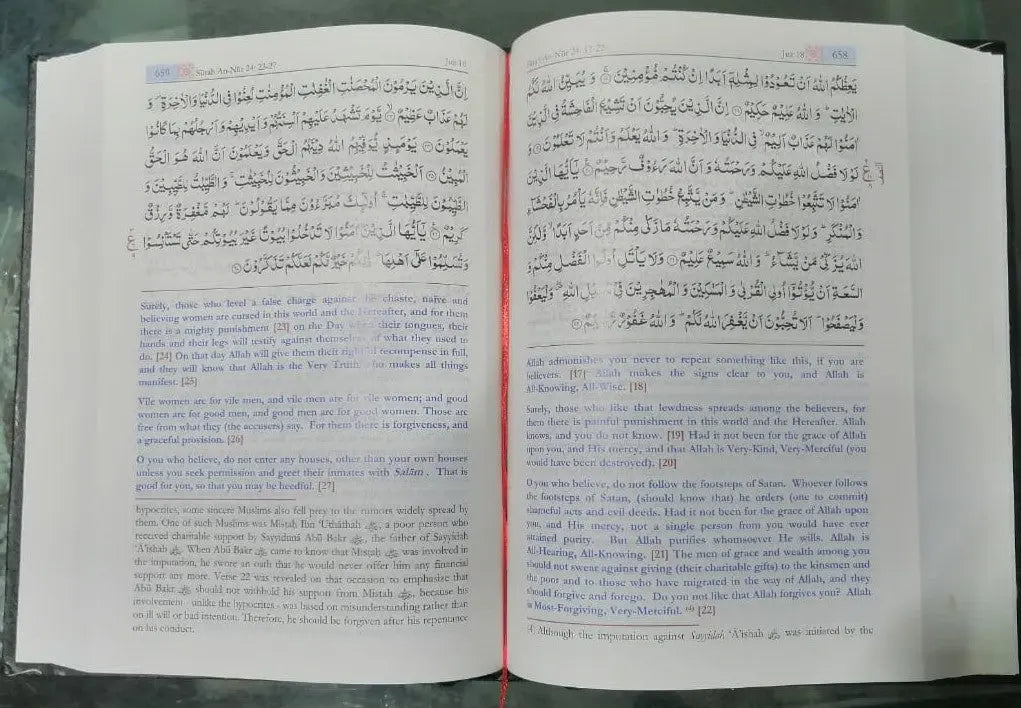 Sūrah An-Nūr 24: 17-22 Juz 18 658
يَعِظُكُمُ اللّٰهُ اَنْ تَعُوْدُوْا لِمِثْلِهٖۤ اَبَدًا اِنْ كُنْتُمْ مُّؤْمِنِيْنَ ۝ وَ يُبَيِّنُ اللّٰهُ لَكُمُ
الْاٰيٰتِ ؕ وَ اللّٰهُ عَلِيْمٌ حَكِيْمٌ ۝ اِنَّ الَّذِيْنَ يُحِبُّوْنَ اَنْ تَشِيْعَ الْفَاحِشَةُ فِي الَّذِيْنَ
اٰمَنُوْا لَهُمْ عَذَابٌ اَلِيْمٌ ۙ فِي الدُّنْيَا وَ الْاٰخِرَةِ ؕ وَ اللّٰهُ يَعْلَمُ وَ اَنْتُمْ لَا تَعْلَمُوْنَ ۝ وَ
لَوْ لَا فَضْلُ اللّٰهِ عَلَيْكُمْ وَ رَحْمَتُهٗ وَ اَنَّ اللّٰهَ رَءُوْفٌ رَّحِيْمٌ ۝ يٰۤاَيُّهَا الَّذِيْنَ
اٰمَنُوْا لَا تَتَّبِعُوْا خُطُوٰتِ الشَّيْطٰنِ ؕ وَ مَنْ يَّتَّبِعْ خُطُوٰتِ الشَّيْطٰنِ فَاِنَّهٗ يَاْمُرُ بِالْفَحْشَآءِ
وَ الْمُنْكَرِ ؕ وَ لَوْ لَا فَضْلُ اللّٰهِ عَلَيْكُمْ وَ رَحْمَتُهٗ مَا زَكٰى مِنْكُمْ مِّنْ اَحَدٍ اَبَدًا ۙ وَّ لٰكِنَّ
اللّٰهَ يُزَكِّيْ مَنْ يَّشَآءُ ؕ وَ اللّٰهُ سَمِيْعٌ عَلِيْمٌ ۝ وَ لَا يَاْتَلِ اُولُوا الْفَضْلِ مِنْكُمْ وَ
السَّعَةِ اَنْ يُّؤْتُوْۤا اُولِي الْقُرْبٰى وَ الْمَسٰكِيْنَ وَ الْمُهٰجِرِيْنَ فِيْ سَبِيْلِ اللّٰهِ ۪ۖ وَ لْيَعْفُوْا
وَ لْيَصْفَحُوْا ؕ اَلَا تُحِبُّوْنَ اَنْ يَّغْفِرَ اللّٰهُ لَكُمْ ؕ وَ اللّٰهُ غَفُوْرٌ رَّحِيْمٌ ۝
Allah admonishes you never to repeat something like this, if you are
believers. [17] Allah makes the signs clear to you, and Allah is
All-Knowing, All-Wise. [18]
Surely, those who like that lewdness spreads among the believers, for
them there is painful punishment in this world and the Hereafter. Allah
knows, and you do not know. [19] Had it not been for the grace of Allah
upon you, and His mercy, and that Allah is Very-Kind, Very-Merciful (you
would have been destroyed). [20]
O you who believe, do not follow the footsteps of Satan. Whoever follows
the footsteps of Satan, (should know that) he orders (one to commit)
shameful acts and evil deeds. Had it not been for the grace of Allah upon
you, and His mercy, not a single person from you would have ever
attained purity. But Allah purifies whomsoever He wills. Allah is
All-Hearing, All-Knowing. [21] The men of grace and wealth among you
should not swear against giving (their charitable gifts) to the kinsmen and
the poor and to those who have migrated in the way of Allah, and they
should forgive and forego. Do you not like that Allah forgives you? Allah
is Most-Forgiving, Very-Merciful. [22]
Although the imputation against Sayyidah ‘Ā’ishah was initiated by the
659 Sūrah An-Nūr 24: 23-27 Juz 18
اِنَّ الَّذِيْنَ يَرْمُوْنَ الْمُحْصَنٰتِ الْغٰفِلٰتِ الْمُؤْمِنٰتِ لُعِنُوْا فِي الدُّنْيَا وَ الْاٰخِرَةِ ۪ وَ
لَهُمْ عَذَابٌ عَظِيْمٌ ۝ يَّوْمَ تَشْهَدُ عَلَيْهِمْ اَلْسِنَتُهُمْ وَ اَيْدِيْهِمْ وَ اَرْجُلُهُمْ بِمَا كَانُوْا
يَعْمَلُوْنَ ۝ يَوْمَئِذٍ يُّوَفِّيْهِمُ اللّٰهُ دِيْنَهُمُ الْحَقَّ وَ يَعْلَمُوْنَ اَنَّ اللّٰهَ هُوَ الْحَقُّ
الْمُبِيْنُ ۝ اَلْخَبِيْثٰتُ لِلْخَبِيْثِيْنَ وَ الْخَبِيْثُوْنَ لِلْخَبِيْثٰتِ ۚ وَ الطَّيِّبٰتُ لِلطَّيِّبِيْنَ وَ
الطَّيِّبُوْنَ لِلطَّيِّبٰتِ ۚ اُولٰٓئِكَ مُبَرَّءُوْنَ مِمَّا يَقُوْلُوْنَ ؕ لَهُمْ مَّغْفِرَةٌ وَّ رِزْقٌ
كَرِيْمٌ ۝ يٰۤاَيُّهَا الَّذِيْنَ اٰمَنُوْا لَا تَدْخُلُوْا بُيُوْتًا غَيْرَ بُيُوْتِكُمْ حَتّٰى تَسْتَاْنِسُوْا
وَ تُسَلِّمُوْا عَلٰۤى اَهْلِهَا ؕ ذٰلِكُمْ خَيْرٌ لَّكُمْ لَعَلَّكُمْ تَذَكَّرُوْنَ ۝
Surely, those who level a false charge against the chaste, naive and
believing women are cursed in this world and the Hereafter, and for them
there is a mighty punishment [23] on the Day when their tongues, their
hands and their legs will testify against themselves of what they used to
do. [24] On that day Allah will give them their rightful recompense in full,
and they will know that Allah is the Very Truth, who makes all things
manifest. [25]
Vile women are for vile men, and vile men are for vile women; and good
women are for good men, and good men are for good women. Those are
free from what they (the accusers) say. For them there is forgiveness, and
a graceful provision. [26]
O you who believe, do not enter any houses, other than your own houses
unless you seek permission and greet their inmates with Salām. That is
good for you, so that you may be heedful. [27]
hypocrites, some sincere Muslims also fell prey to the rumors widely spread by
them. One of such Muslims was Mistah Ibn ‘Uthāthah, a poor person who
received charitable support by Sayyidunā Abū Bakr, the father of Sayyidah
‘Ā’ishah. When Abū Bakr came to know that Mistah was involved in
the imputation, he swore an oath that he would never offer him any financial
support any more. Verse 22 was revealed on that occasion to emphasize that
Abū Bakr should not withhold his support from Mistah, because his
involvement - unlike the hypocrites - was based on misunderstanding rather than
on ill will or bad intention. Therefore, he should be forgiven after his repentance
on his conduct.